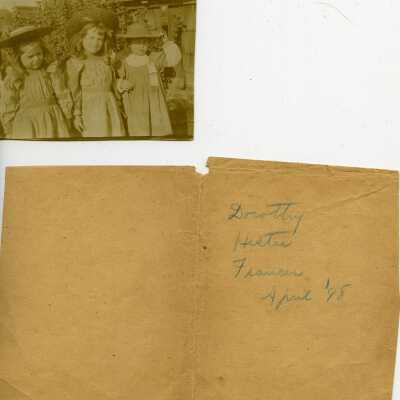 Dorothy
Hester
Frances
April '98